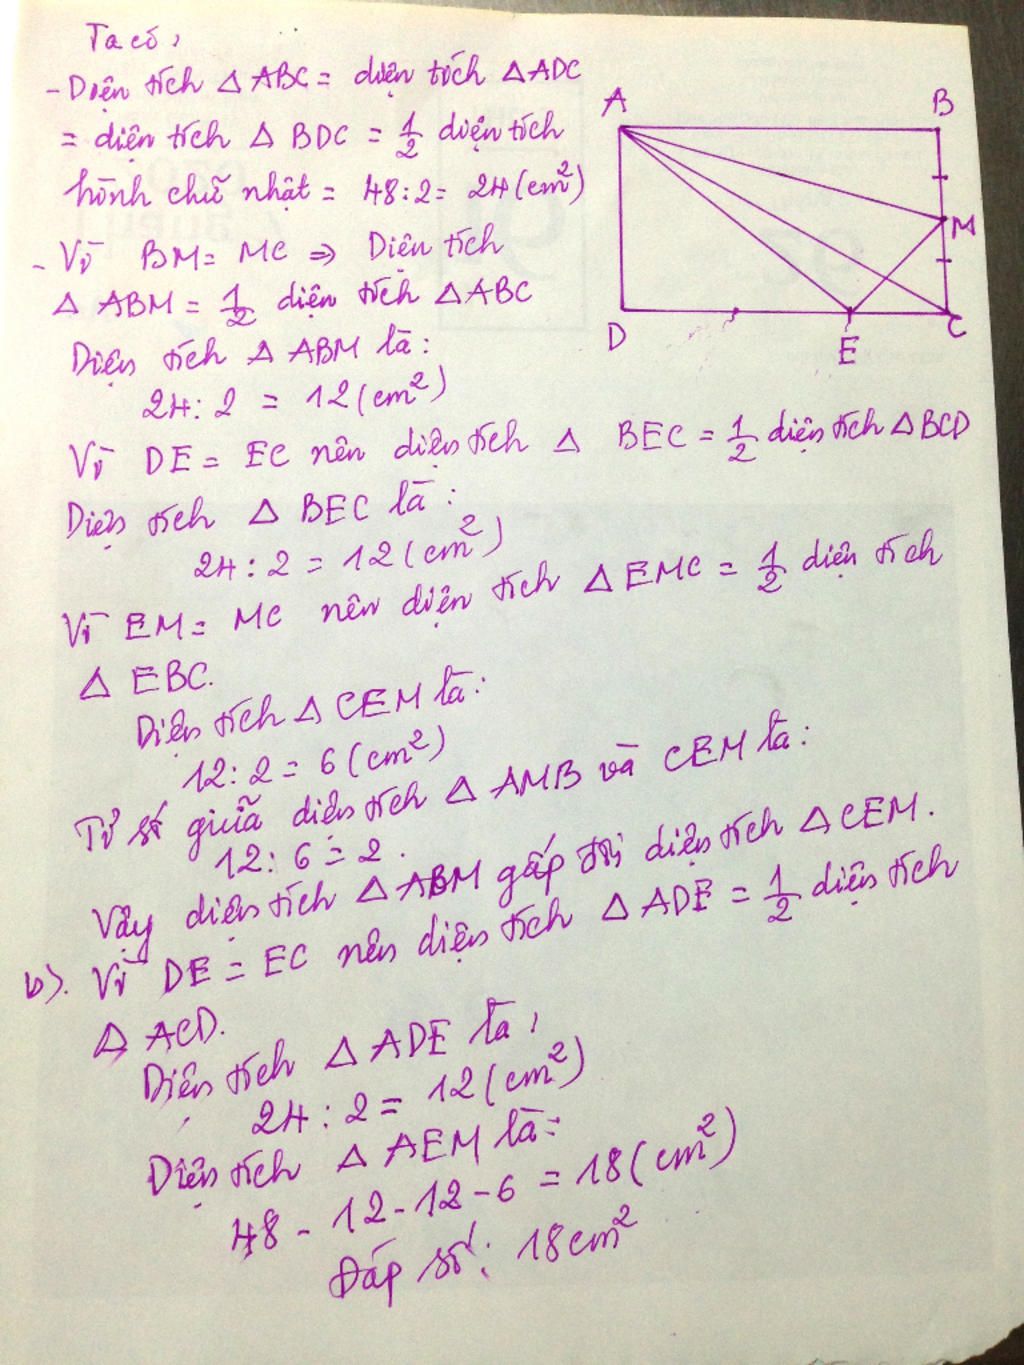 Ta có,
- Diện tích Δ ABC = diện tích Δ ADC
= diện tích Δ BDC = 1/2 diện tích
hình chữ nhật = 48:2 = 24 (cm²)
- Vì BM = MC ⇒ Diện tích
Δ ABM = 1/2 diện tích Δ ABC
Diện tích Δ ABM là:
24 : 2 = 12 (cm²)
Vì DE = EC nên diện tích Δ BEC = 1/2 diện tích Δ BCD
Diện tích Δ BEC là:
24 : 2 = 12 (cm²)
Vì EM = MC nên diện tích Δ EMC = 1/2 diện tích
Δ EBC.
Diện tích Δ CEM là:
12 : 2 = 6 (cm²)
Tỉ số giữa diện tích Δ AMB và CEM là:
12 : 6 = 2.
Vậy diện tích Δ ABM gấp đôi diện tích Δ CEM.
b). Vì DE = EC nên diện tích Δ ADE = 1/2 diện tích
Δ ACD.
Diện tích Δ ADE là,
24 : 2 = 12 (cm²)
Diện tích Δ AEM là:
48 - 12 - 12 - 6 = 18 (cm²)
Đáp số: 18 cm²
A
B
M
D
E
C